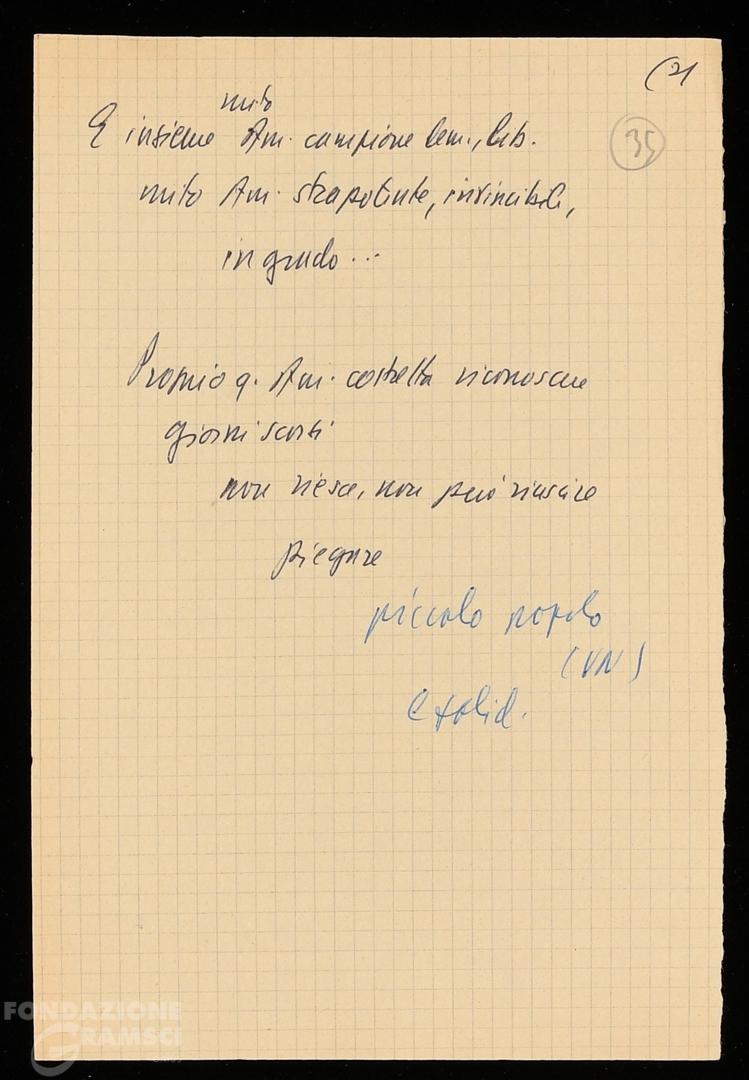 (21
35
mito
E insieme Am. campione dem., lib.
mito Am. strapotente, invincibile,
in grado...
Proprio q. Am. costretta riconoscere
giorni scorsi
non riesce, non può riuscire
piegare
piccolo popolo
(VN)
e solid.
FONDAZIONE
GRAMSCI